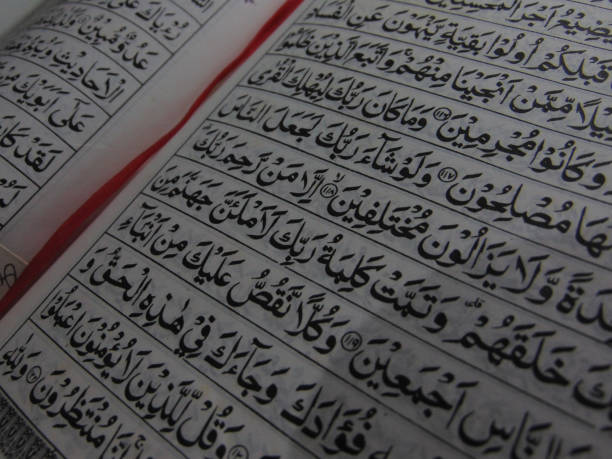 اَجْرَ الْمُحْسِنِيْنَ
قَبْلِكُمْ اُولُوْا بَقِيَّةٍ يَّنْهَوْنَ عَنِ الْفَسَا
يْلًا مِّمَّنْ اَنْجَيْنَا مِنْهُمْ ۚ وَاتَّبَعَ الَّذِيْنَ ظَلَمُوْا
وَكَانُوْا مُجْرِمِيْنَ ۝١١٦ وَمَا كَانَ رَبُّكَ لِيُهْلِكَ الْقُرٰى
هَا مُصْلِحُوْنَ ۝١١٧ وَلَوْ شَآءَ رَبُّكَ لَجَعَلَ النَّاسَ
دَةً وَّلَا يَزَالُوْنَ مُخْتَلِفِيْنَ ۝١١٨ اِلَّا مَنْ رَّحِمَ رَبُّكَ
كَ خَلَقَهُمْ ؕ وَتَمَّتْ كَلِمَةُ رَبِّكَ لَاَمْلَئَنَّ جَهَنَّمَ مِنَ
النَّاسِ اَجْمَعِيْنَ ۝١١٩ وَكُلًّا نَّقُصُّ عَلَيْكَ مِنْ اَنْۢبَآءِ
فُؤَادَكَ وَجَآءَكَ فِيْ هٰذِهِ الْحَقُّ وَ
وَقُلْ لِّلَّذِيْنَ لَا يُؤْمِنُوْنَ اعْمَلُوْا
مُنْتَظِرُوْنَ وَلِلّٰهِ
عَدُوٌّ مُّبِيْنٌ
الْاَحَادِيْثِ
عَلٰٓى اَبَوَيْكَ مِنْ
لَقَدْ كَانَ